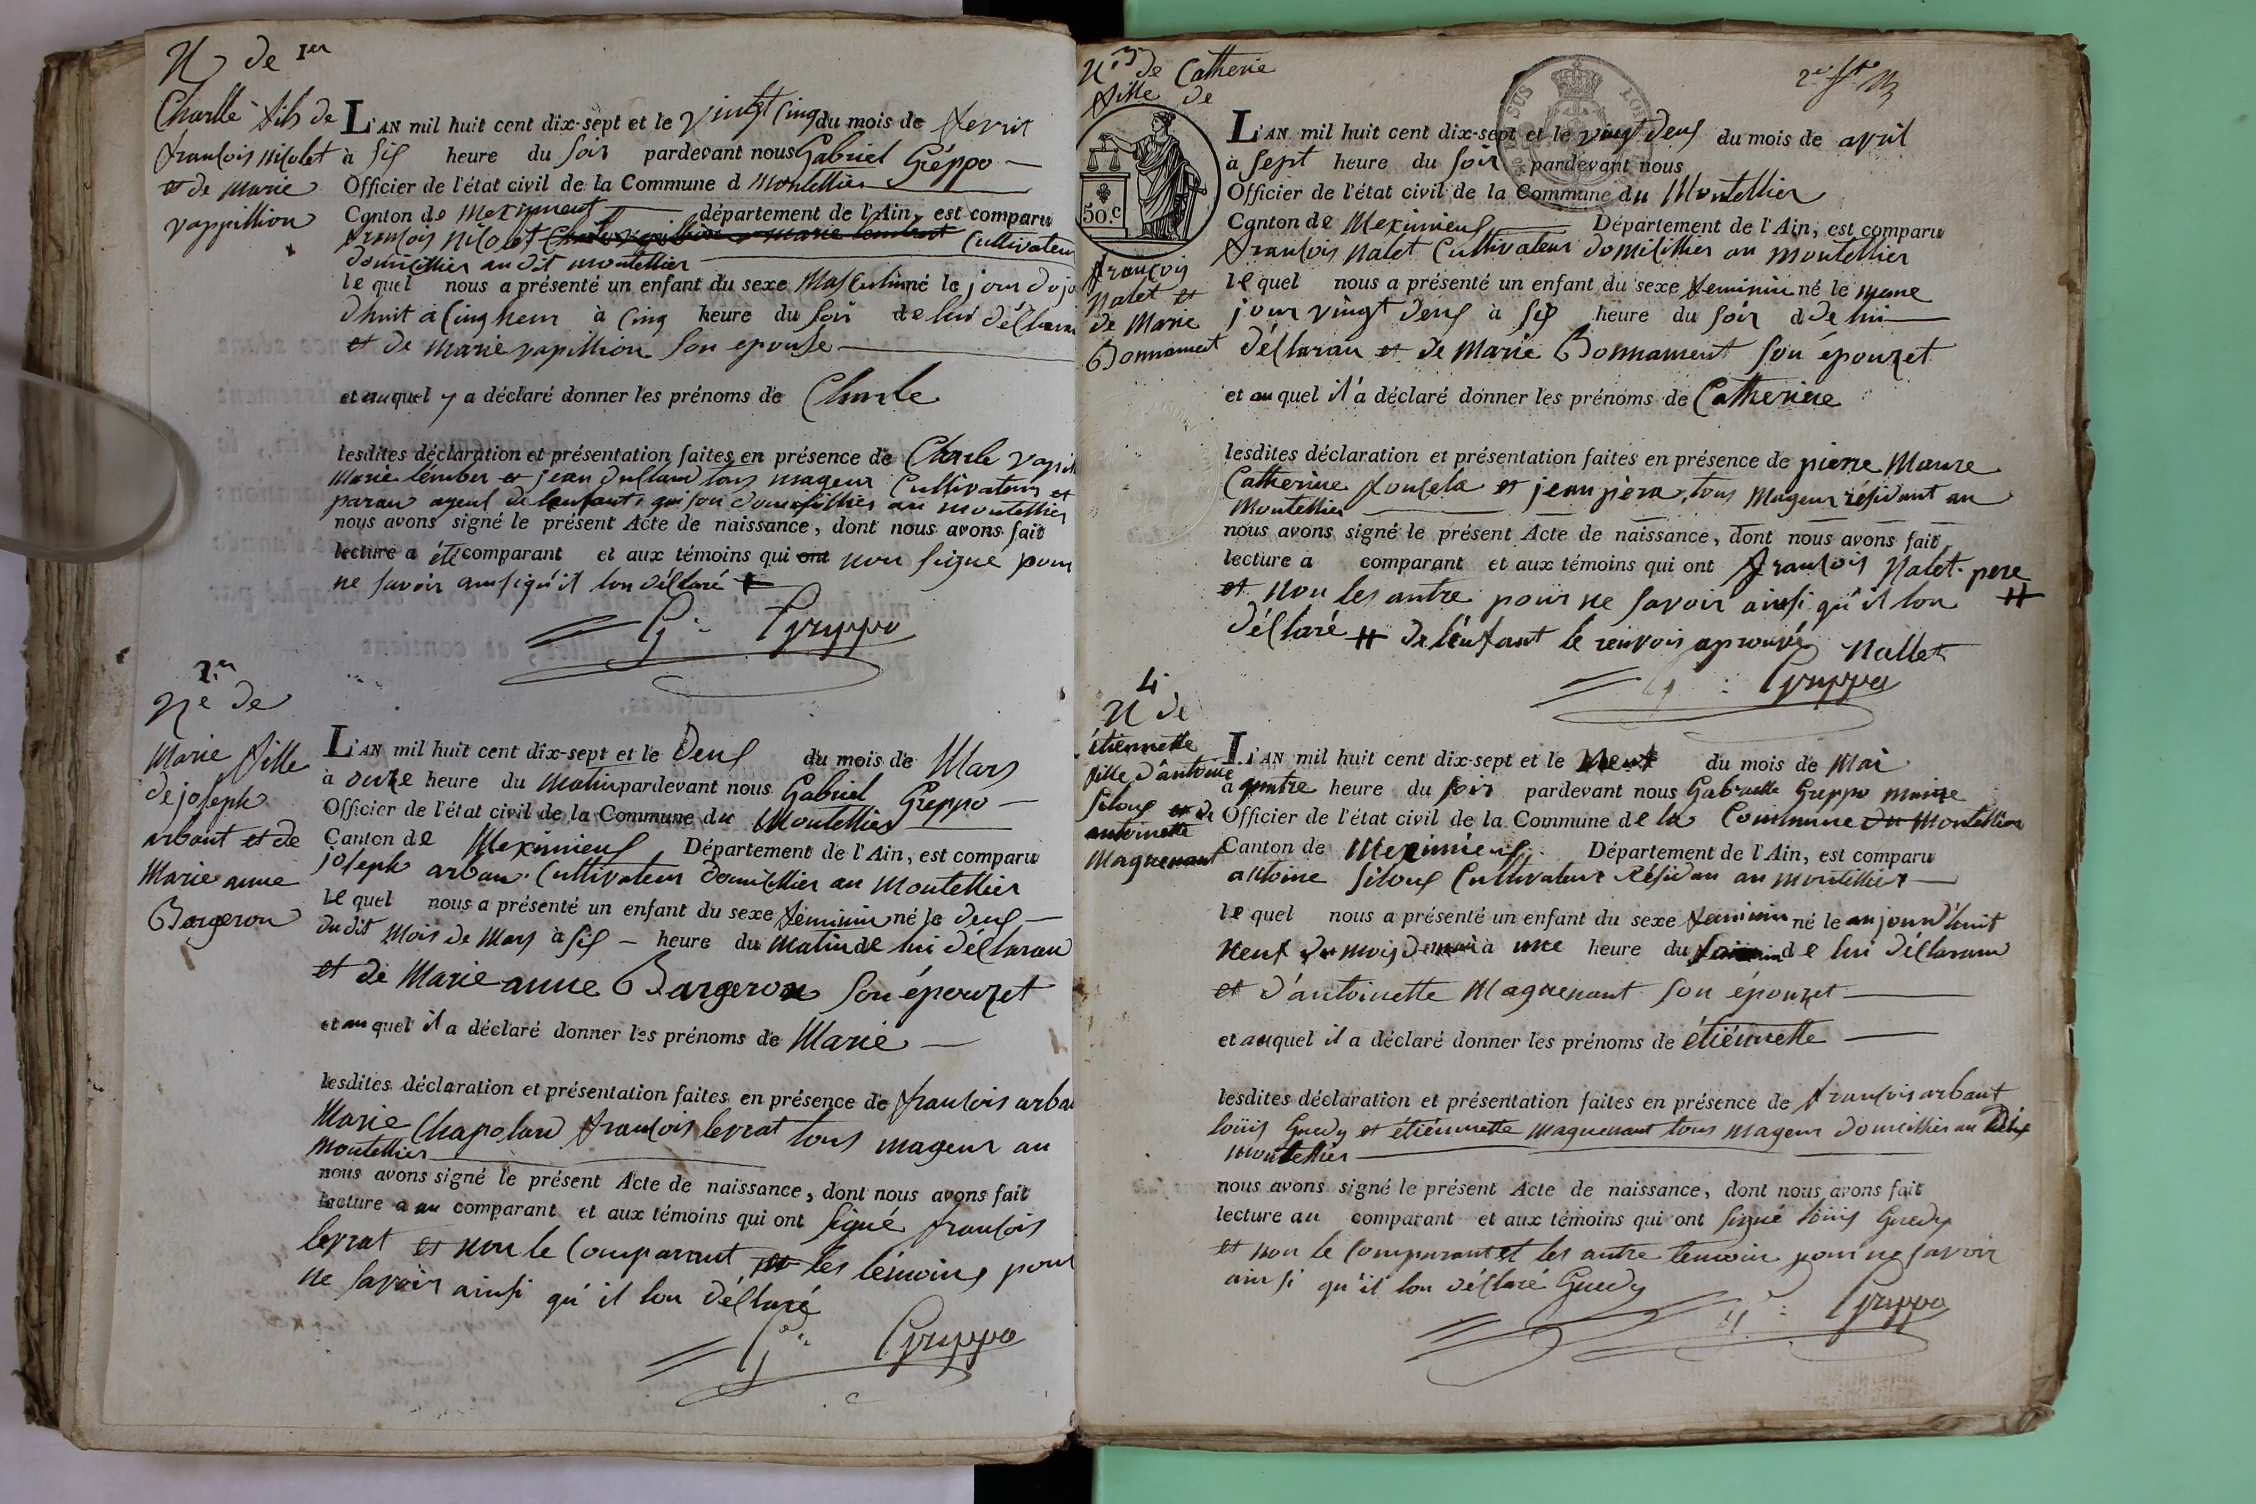 N de 1er
Charlle fils de
francois nicolet
et de marie
vappillion
L'AN mil huit cent dix-sept et le vingt cinq du mois de fevrit
à six heure du soir pardevant nous Gabriel Gréppo
Officier de l'état civil de la Commune d Montellier
Canton de Meximient département de l'Ain, est comparu
francois nicolet Cultivateur
domicillier au dit montellier
le quel nous a présenté un enfant du sexe Masculin né le jour dojo
dhuit a cinq heur à cinq heure du soir de lui déclaran
et de marie vapillion son epouse
et auquel y a déclaré donner les prénoms de Charle
lesdites déclaration et présentation faites en présence de Charle vapill
Marie lémber et jean dullard tous mageur Cultivateur et
paran ayeul de lenfant qui son domicillier au montellier
nous avons signé le présent Acte de naissance, dont nous avons fait
lecture a été comparant et aux témoins qui ont non signe pour
ne savoir ainsi qu'il lon déclaré
G: Greppo
2me
Ne de
Marie fille
de joseph
arbant et de
Marie anne
Bargeron
L'AN mil huit cent dix-sept et le Deux du mois de Mars
à onze heure du matin pardevant nous Gabriel Greppo
Officier de l'état civil de la Commune du Montellier
Canton de Meximieux Département de l'Ain, est comparu
joseph arban Cultivateur domicillier au Montellier
le quel nous a présenté un enfant du sexe féminin né le deux
dudit mois de Mars à six heure du matin de lui déclaran
et de Marie anne Bargeron son épouzet
et au quel il a déclaré donner les prénoms de Marie
lesdites déclaration et présentation faites en présence de francois arba
Marie Chapolard francois leprat tous mageur au
montellier
nous avons signé le présent Acte de naissance, dont nous avons fait
lecture a au comparant et aux témoins qui ont signé francois
leprat et non le comparant et les témoins pour
ne savoir ainsi qu'il lon déclaré
G: Greppo
N.3 de Catherie
fille de
50.c
francois
Nalet et
de Marie
Bonnament
L'AN mil huit cent dix-sept et le vingt deux du mois de avril
à sept heure du soir pardevant nous
Officier de l'état civil de la Commune du Montellier
Canton de Meximieux Département de l'Ain, est comparu
francois Nalet Cultivateur domicillier au montellier
le quel nous a présenté un enfant du sexe feminin né le meme
jour vingt deux à six heure du soir d de lui
déclaran et de Marie Bonnament son épouzet
et au quel il a déclaré donner les prénoms de Catherine
lesdites déclaration et présentation faites en présence de pierre Maure
Catherine et jean tous mageur résidant au
Montellier
nous avons signé le présent Acte de naissance, dont nous avons fait
lecture a comparant et aux témoins qui ont francois Nalet pere #
et non les autre pour ne savoir ainsi qu'il lon
déclaré # de lénfant le renvois aprouvé Nallet
G: Greppo
4
N de
étiennette
fille d'antoine
siloux et de
antoinette
Maguenant
L'AN mil huit cent dix-sept et le Neuf du mois de Mai
a quatre heure du soir pardevant nous Gabrielle Greppo maire
Officier de l'état civil de la Commune de la Commune du Montellier
Canton de Meximieux Département de l'Ain, est comparu
antoine siloux Cultivateur résidan au montellier
le quel nous a présenté un enfant du sexe feminin né le aujourd'huit
neuf du mois de mai à une heure du de lui déclarant
et d'antoinette Maguenant son épouzet
et auquel il a déclaré donner les prénoms de étiénnette
lesdites déclaration et présentation faites en présence de francois arbant
loüis Guedy et étiénnette maguenant tous mageur domicillier au
montellier
nous avons signé le présent Acte de naissance, dont nous avons fait
lecture au comparant et aux témoins qui ont signé loüis Guedy
et non le comparant et les autre temoin pour ne savoir
ainsi qu'il lon déclaré Guedy
G: Greppo